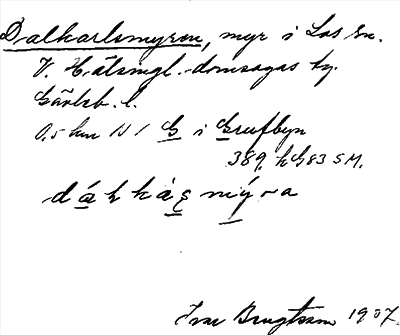 Dalkarlsmyren, myr i Los sn.
V. Hälsingl. domsagas tg.
Gävleb. l.
0,5 km N / G i Grufbyn
389. h G 83 S M.
d á k k à ȩ m ý r a
Ivar Bengtsson 1937.